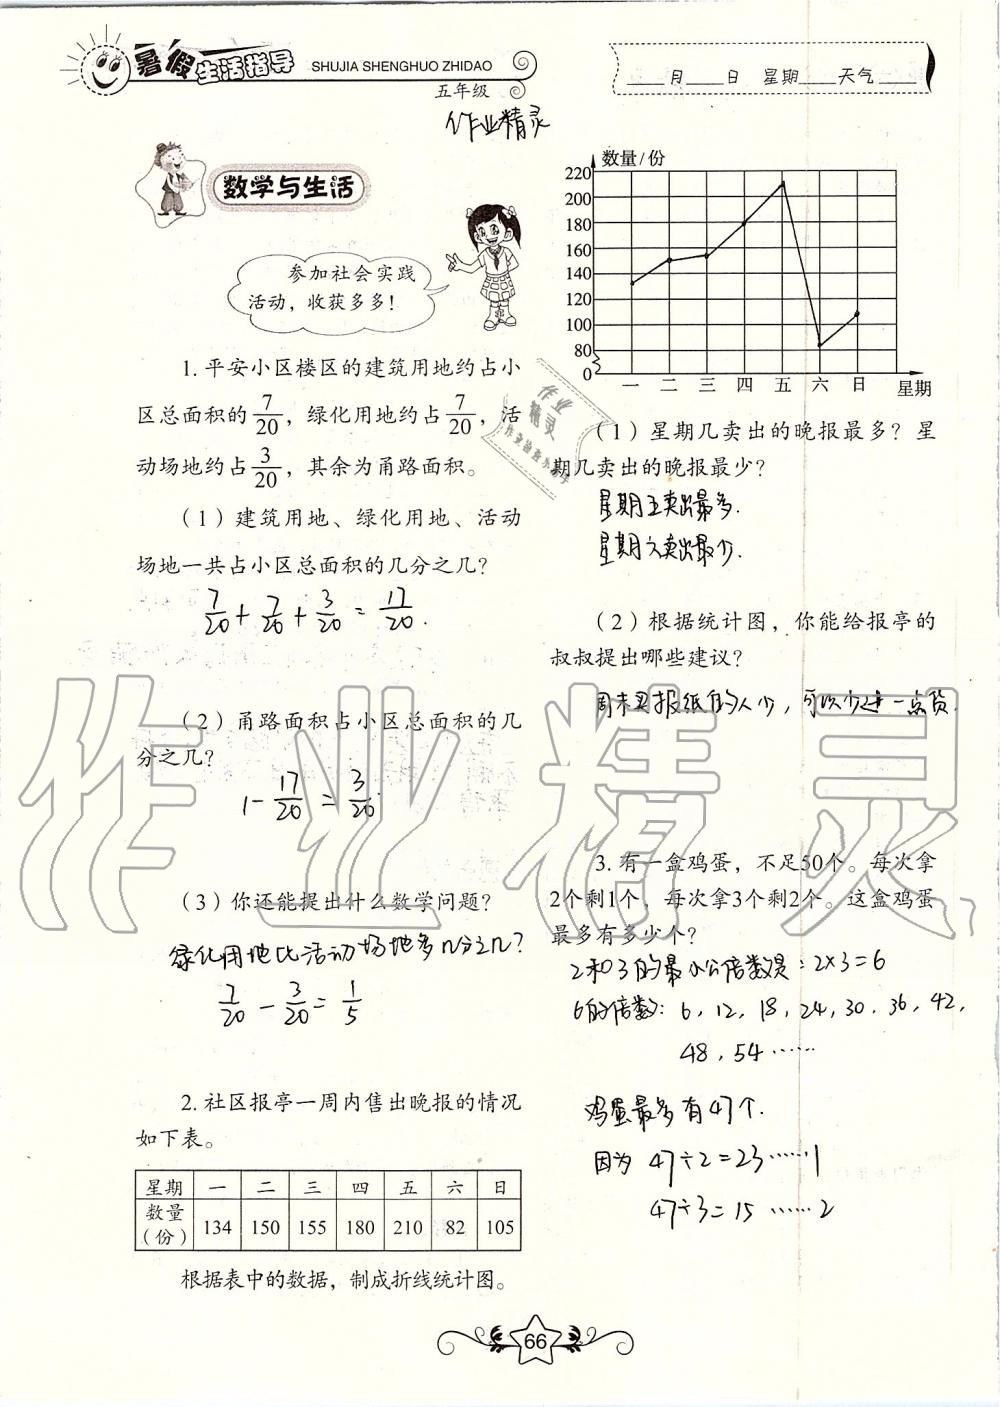 暑假生活指导
SHUJIA SHENGHUO ZHIDAO
五年级
作业精灵
月 日 星期 天气
数学与生活
参加社会实践
活动，收获多多！
1.平安小区楼区的建筑用地约占小
区总面积的7/20，绿化用地约占7/20，活
动场地约占3/20，其余为甬路面积。
（1）建筑用地、绿化用地、活动
场地一共占小区总面积的几分之几？
7/20+7/20+3/20=17/20.
（2）甬路面积占小区总面积的几
分之几？
1-17/20=3/20.
（3）你还能提出什么数学问题？
绿化用地比活动场地多几分之几？
7/20-3/20=1/5
2.社区报亭一周内售出晚报的情况
如下表。
星期 一 二 三 四 五 六 日
数量（份） 134 150 155 180 210 82 105
根据表中的数据，制成折线统计图。
数量/份
220
200
180
160
140
120
100
80
0
一 二 三 四 五 六 日 星期
（1）星期几卖出的晚报最多？星
期几卖出的晚报最少？
星期五卖出最多.
星期六卖出最少.
（2）根据统计图，你能给报亭的
叔叔提出哪些建议？
周末买报纸的人少，可以少进一点货.
3.有一盒鸡蛋，不足50个。每次拿
2个剩1个，每次拿3个剩2个。这盒鸡蛋
最多有多少个？
2和3的最小公倍数是：2×3=6
6的倍数：6，12，18，24，30，36，42，
48，54……
鸡蛋最多有47个.
因为 47÷2=23……1
47÷3=15……2
66
作业精灵
作业
精灵